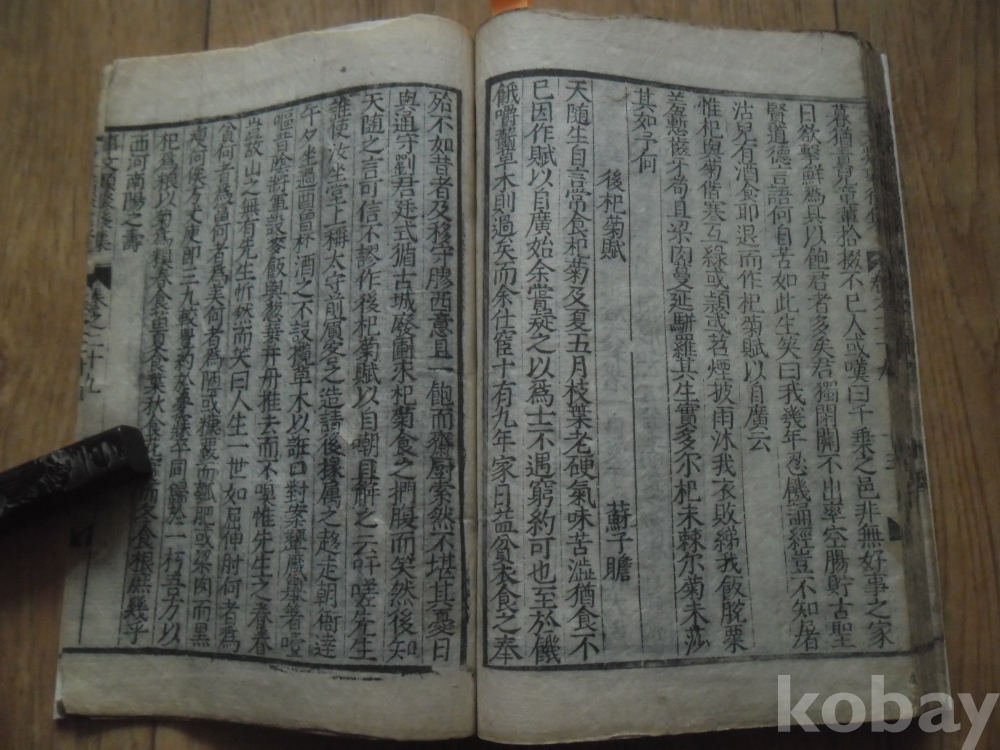 暮猶責兒童輩拾掇不已人或嘆曰千乗之邑非無好事之家
日欲擊鮮爲具以飽君者多矣君獨閉關不出率空腸貯古聖
賢道德言語何自苦如此生笑曰我幾年忍飢誦經豈不知屠
沽兒有酒食耶退而作杞菊賦以自廣云
惟杞與菊偕寒互綠或潁或苕煙披雨沐我衣敗綈我飯脫粟
羞慙齒牙苟且粱肉蔓延駢羅其生實多尔杞未棘尔菊未莎
其如予何
後杞菊賦 蘇子瞻
天隨生自言常食杞菊及夏五月枝葉老硬氣味苦澁猶食不
已因作賦以自廣始余嘗疑之以爲士不遇窮約可也至於飢
餓嚼齧草木則過矣而余仕宦十有九年家日益貧衣食之奉
殆不如昔者及移守膠西意且一飽而齋厨索然不堪其憂日
與通守劉君廷式循古城廢圃求杞菊食之捫腹而笑然後知
天隨之言可信不謬作後杞菊賦以自嘲且解之云吁嗟先生
誰使汝坐堂上稱太守前賓客之造請後掾屬之趍走朝衙達
午夕坐過酉曾杯酒之不設攬草木以誑口對案顰蹙擧箸噎
嘔昔陰將軍設麥飯與葱葉井丹推去而不嗅惟先生之眷眷
豈故山之無有先生忻然而笑曰人生一世如屈伸肘何者爲
貧何者爲富何者爲美何者爲陋或糠覈而瓠肥或粱肉而黑
瘦何侯方丈庾郎三九較豊約於夢寐卒同歸於一朽吾方以
杞爲粮以菊爲糗春食苗夏食葉秋食花實而冬食根庶幾乎
西河南陽之壽
卷之二十九